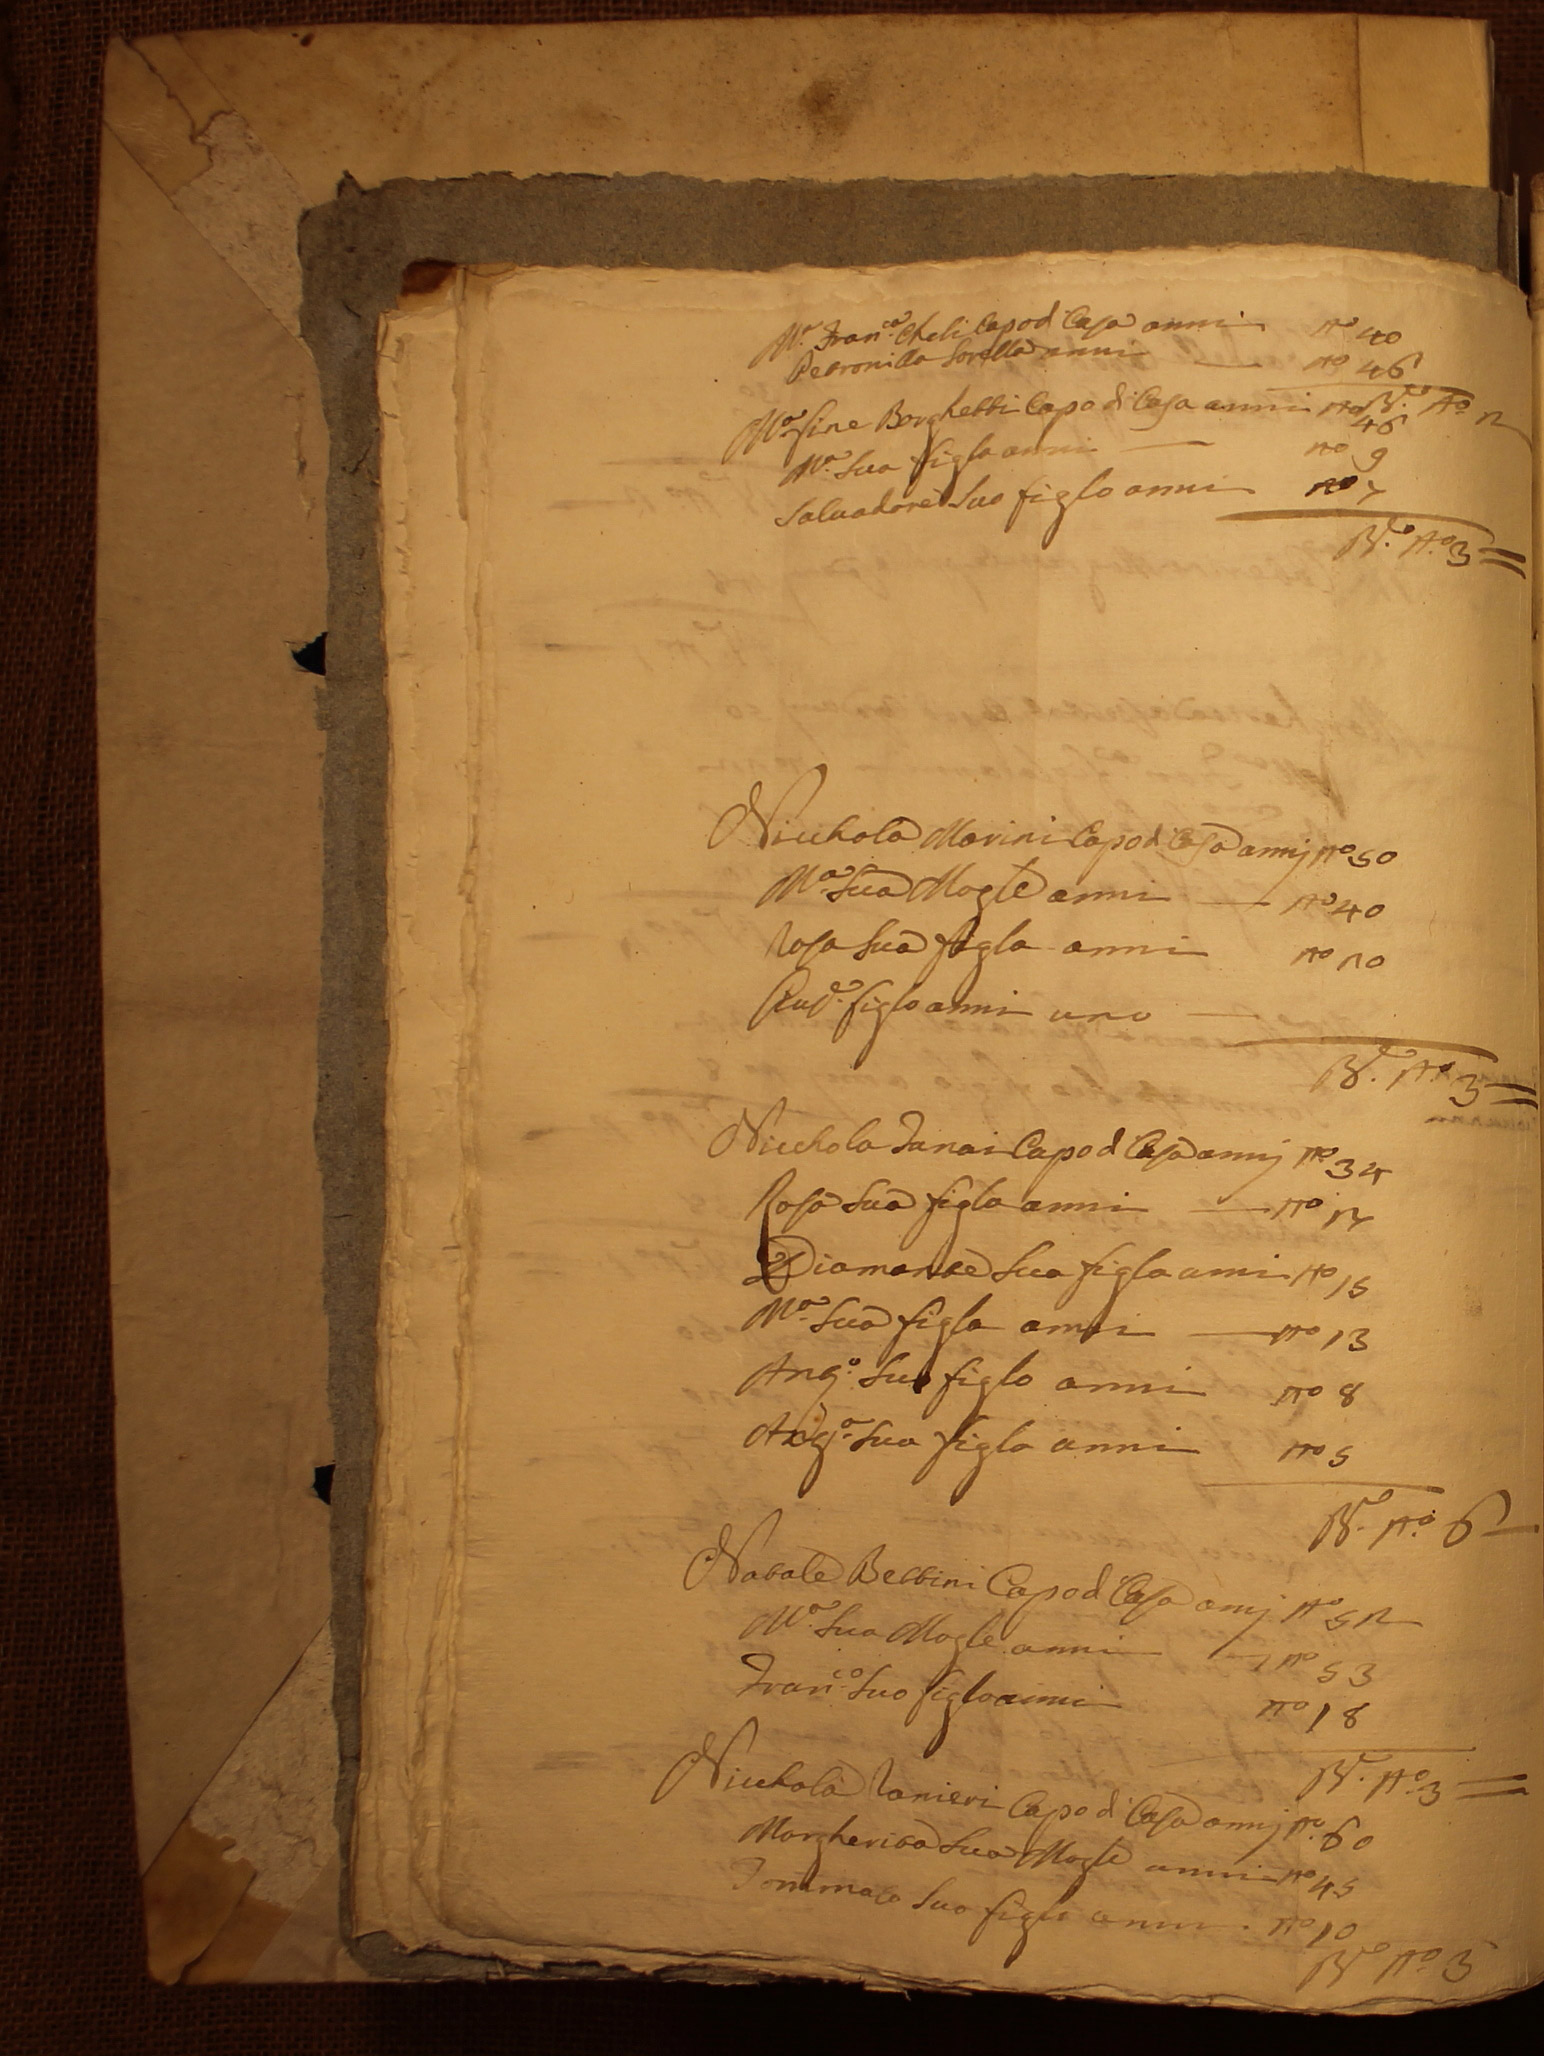 M.ª Fran.ca Cheli Capo d Casa anni n° 40
Petronilla Sorella anni n° 46
B.e n° 2
M.ª fine Borghetti Capo di Casa anni n° 46
M.ª Sua figla anni n° 9
Salvadore Suo figlo anni n° 7
B.e n° 3
Nicchola Marini Capo d Casa annj n° 50
M.ª Sua Mogle anni n° 40
Rosa Sua figla anni n° 20
figlo anni uno
B.e n° 3
Nicchola Capo d Casa annj n° 34
Rosa Sua figla anni n° 17
Diamante Sua figla anni n° 15
M.ª Sua figla anni n° 13
Ang.° Suo figlo anni n° 8
Ang.ª Sua figla anni n° 5
B.e n° 6
Natale Bettini Capo d Casa annj n° 52
M.ª Sua Mogle anni n° 53
Fran.co Suo figlo anni n° 18
B.e n° 3
Nicchola Ranieri Capo d Casa annj n° 60
Margherita Sua Mogle anni n° 45
Tommaso Suo figlo anni n° 10
B.e n° 3